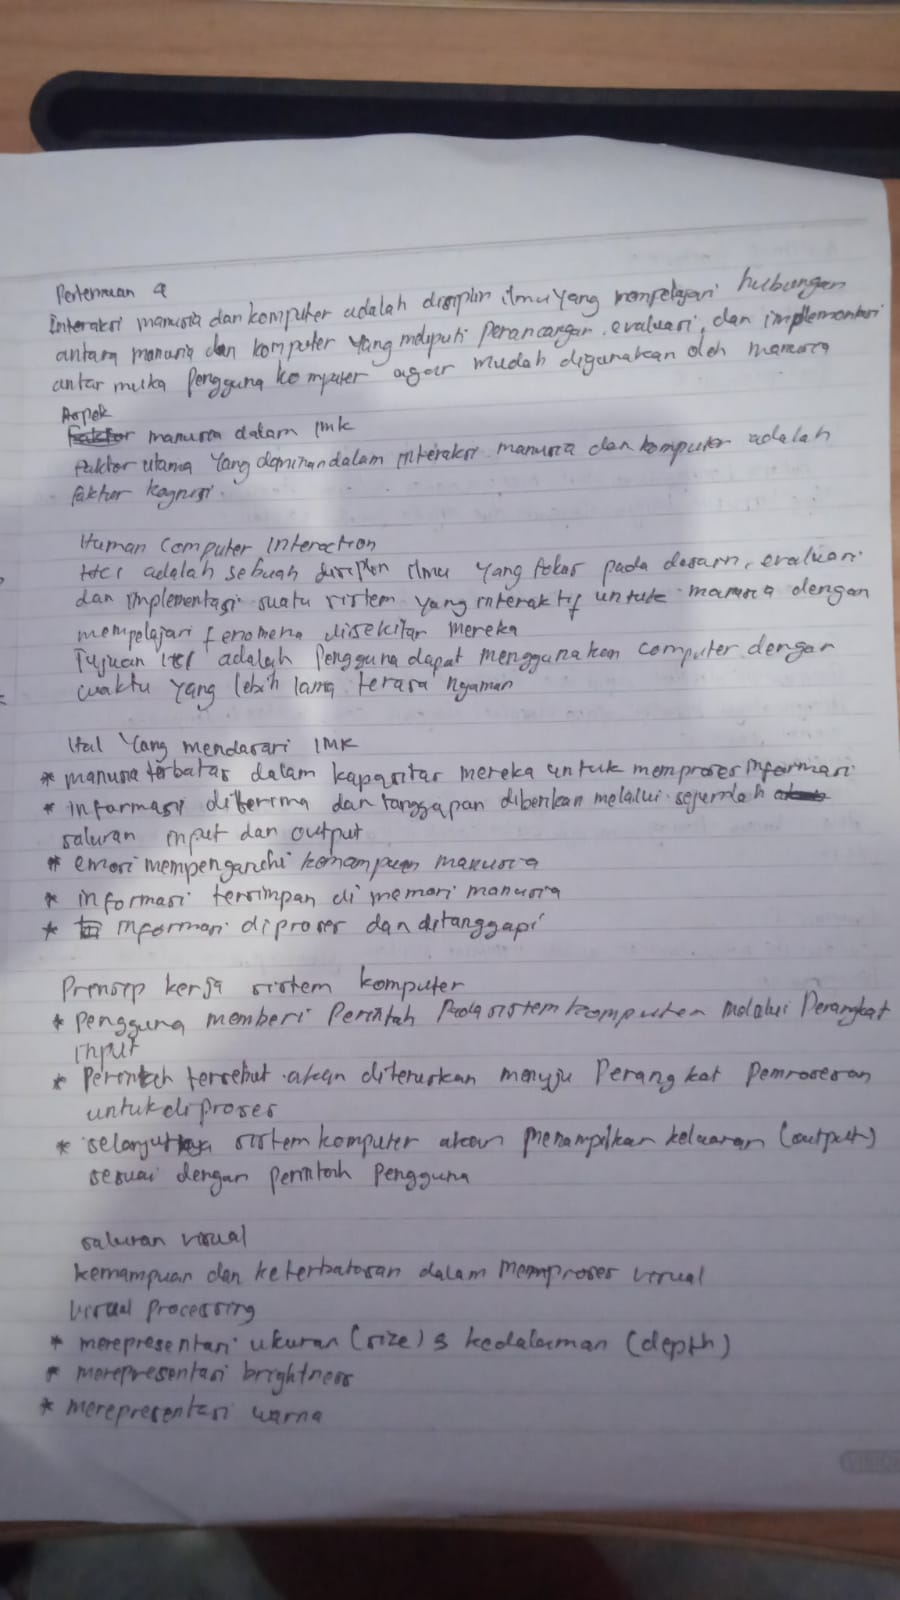 Pertemuan 4
Interaksi manusia dan komputer adalah disiplin ilmu yang mempelajari hubungan
antara manusia dan komputer yang meliputi perancangan, evaluasi, dan implementasi
antar muka pengguna komputer agar mudah digunakan oleh manusia
Aspek
manusia dalam IMK
faktor utama yang dominan dalam interaksi manusia dan komputer adalah
faktor kognisi.
Human Computer Interaction
HCI adalah sebuah disiplin ilmu yang fokus pada desain, evaluasi
dan implementasi suatu sistem yang interaktif untuk manusia dengan
mempelajari fenomena disekitar mereka
Tujuan HCI adalah pengguna dapat menggunakan computer dengan
waktu yang lebih lama terasa nyaman
Hal yang mendasari IMK
* manusia terbatas dalam kapasitas mereka untuk memproses informasi
* informasi diterima dan tanggapan diberikan melalui sejumlah
saluran input dan output
* emosi mempengaruhi kemampuan manusia
* informasi tersimpan di memori manusia
* informasi diproses dan ditanggapi
Prensip kerja sistem komputer
* pengguna memberi perintah pada sistem komputer melalui perangkat
input
* perintah tersebut akan diteruskan menuju perangkat pemrosesan
untuk diproses
* selanjutnya sistem komputer akan menampilkan keluaran (output)
sesuai dengan perintah pengguna
saluran visual
kemampuan dan keterbatasan dalam memproses visual
visual processing
* merepresentasi ukuran (size) & kedalaman (depth)
* merepresentasi brightness
* merepresentasi warna